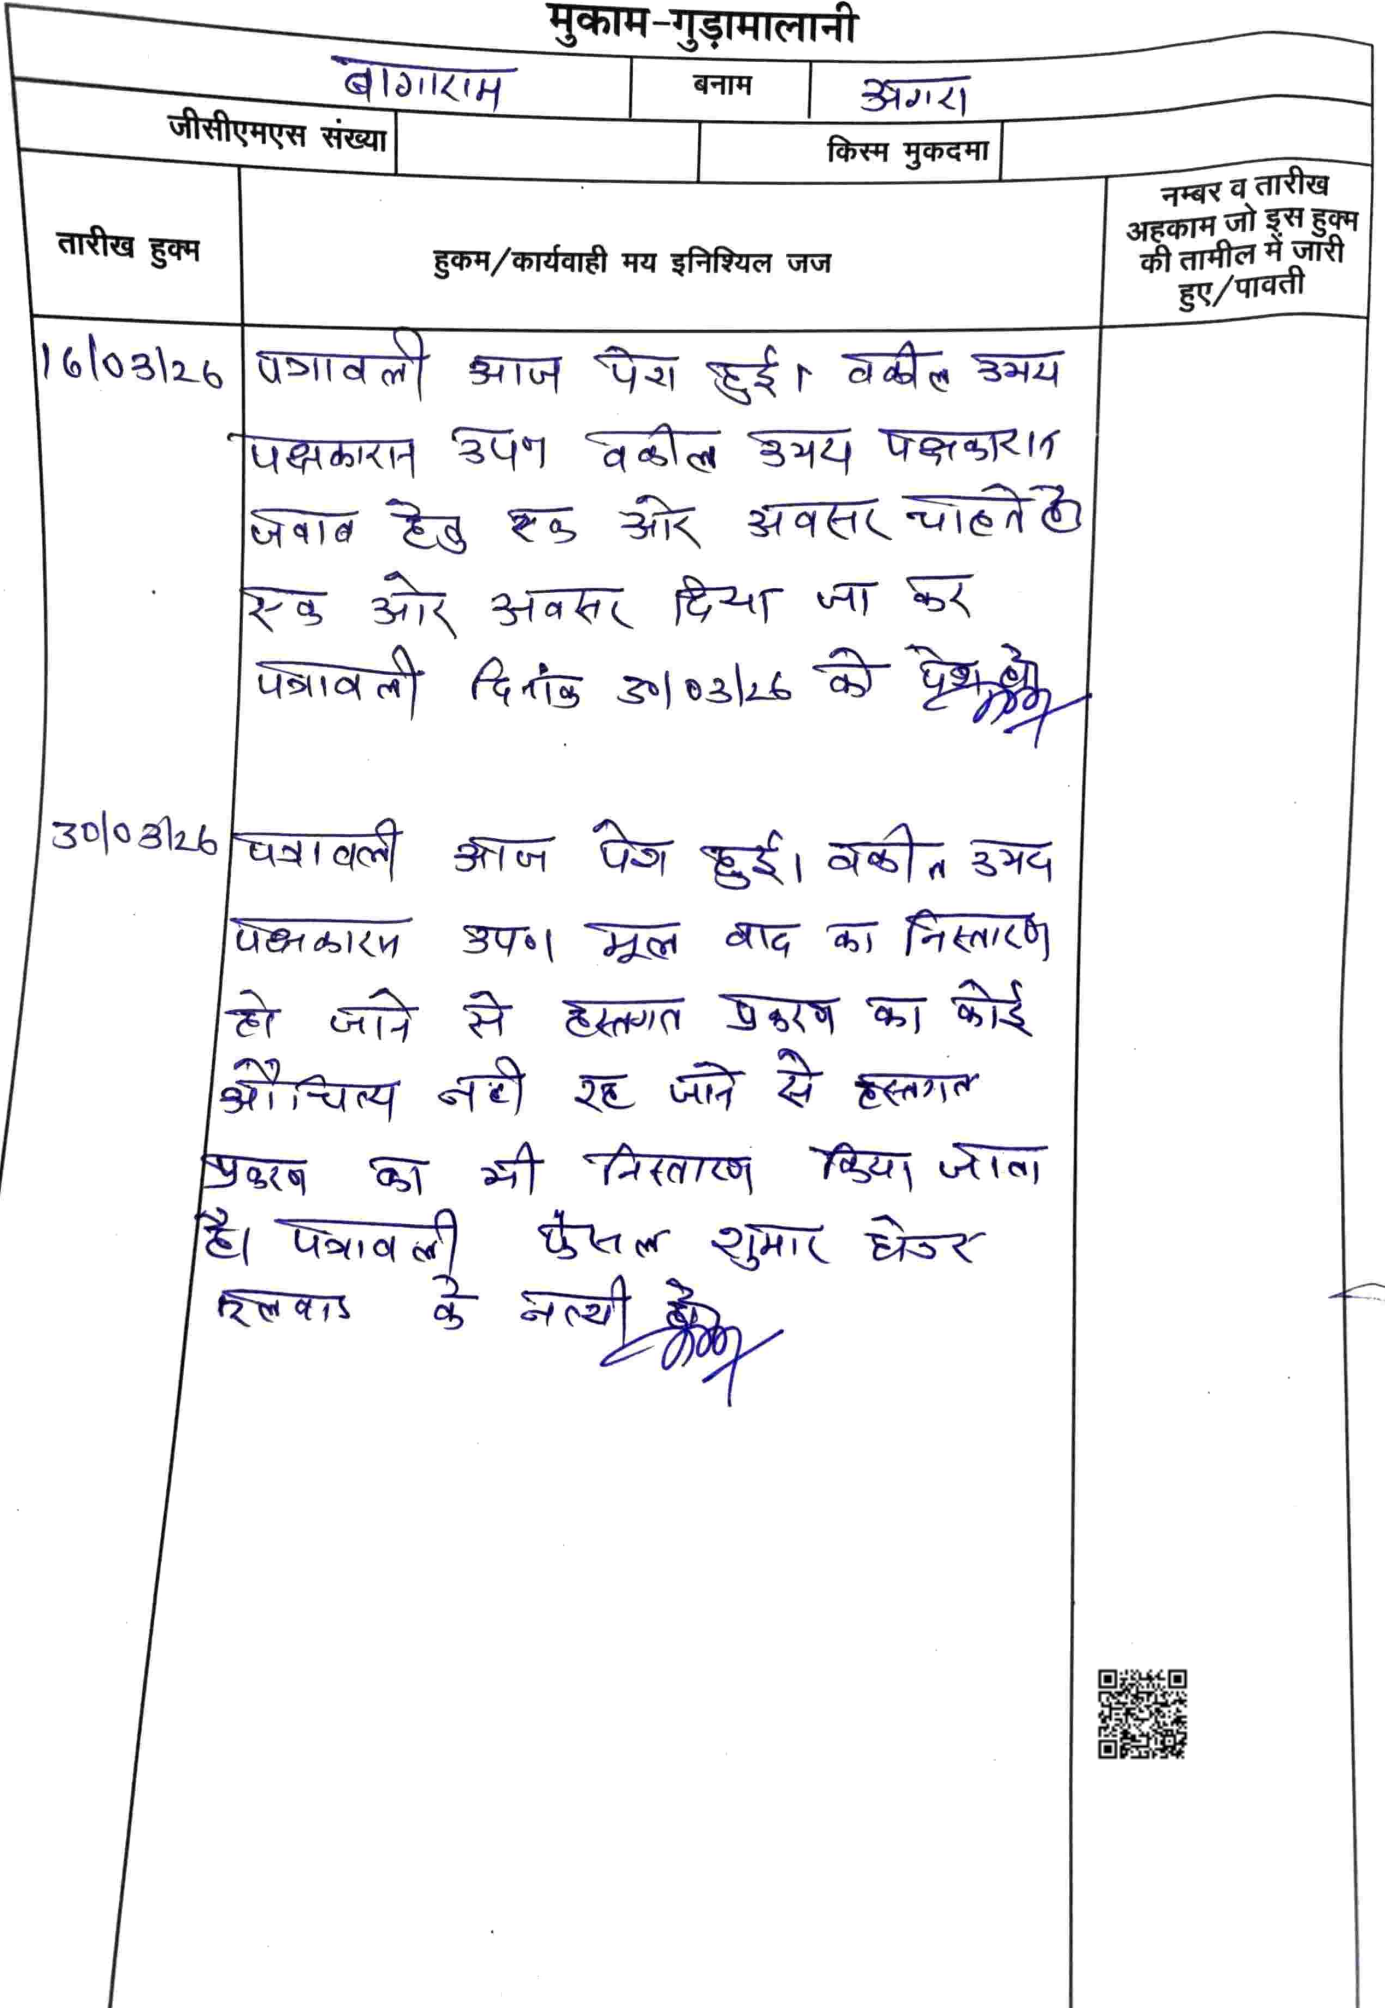 मुकाम-गुड़ामालानी
बागाराम बनाम अगरा
जीसीएमएस संख्या किस्म मुकदमा
तारीख हुक्म
हुकम/कार्यवाही मय इनिश्यिल जज
नम्बर व तारीख
अहकाम जो इस हुक्म
की तामील में जारी
हुए/पावती
16/03/26 पत्रावली आज पेश हुई। वकील उभय
पक्षकारान उपण वकील उभय पक्षकारान
जवाब हेतु एक ओर अवसर चाहते है
एक ओर अवसर दिया जा कर
पत्रावली दिनांक 30/03/26 को पेश हो
30/03/26 पत्रावली आज पेश हुई। वकील उभय
पक्षकारान उपण। मूल वाद का निस्तारण
हो जाने से हस्तगत प्रकरण का कोई
औचित्य नही रह जाने से हस्तगत
प्रकरण का भी निस्तारण किया जाता
है। पत्रावली फैसल शुमार होकर
के नत्थी हो